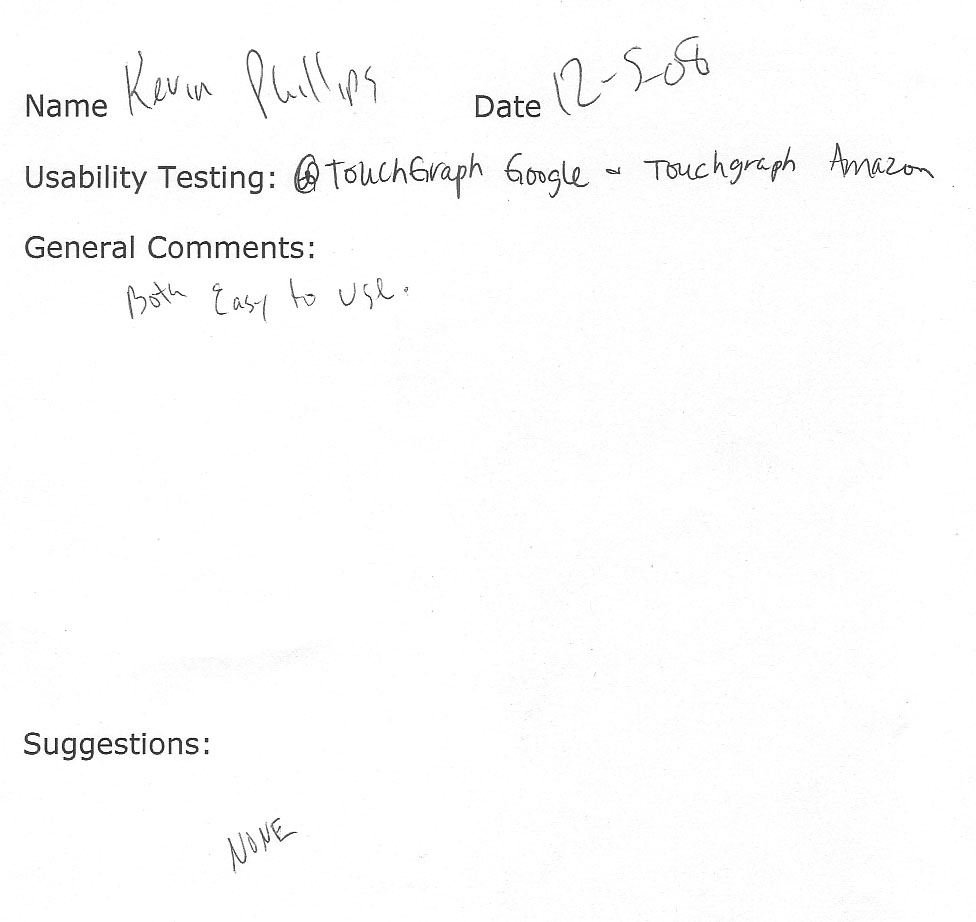 Name Kevin Phillips Date 12-5-08
Usability Testing: TouchGraph Google - Touchgraph Amazon
General Comments:
Both Easy to use.
Suggestions:
NONE